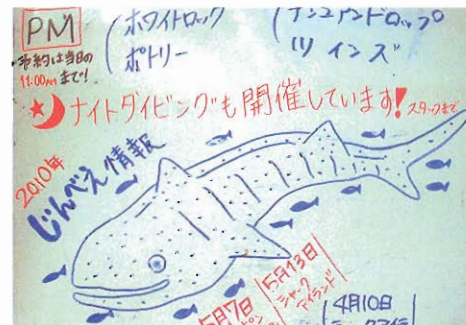 PM
予約は当日の
11:00AMまで!
ホワイトロック
ポトリー
ツインズ
ナイトダイビングも開催しています! スタッフまで
2010年
じんべえ情報
5月7日
5月13日
シャーク
アイランド
4月10日